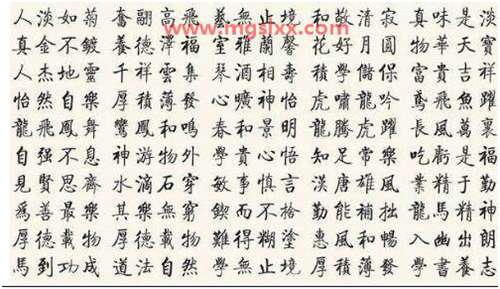 www.mgslxx.com
人淡如菊 奮翮高飛 藝無止境 和敬清寂 真味是淡
真金不鍍 養德澤福 室雅蘭馨 花好月圓 物華天寶
人杰地靈 千祥雲集 琴酒 壽 積學儲 富貴吉祥
怡然自樂 厚積薄發 心曠神怡 虎嘯龍吟 鳶飛魚躍
龍飛鳳舞 鸞鳳和鳴 春和景明 龍騰虎躍 長風萬裏
自强不息 神游物外 學貴心悟 知足常樂 吃虧是福
見賢思齊 水滴石穿 敏事慎言 漢唐雄風 業精于勤
爲善最樂 其樂無窮 鍥而不捨 勤能補拙 龍馬精神
厚德載物 厚德載物 難得糊塗 惠風和暢 入幽出朗
馬到功成 道法自然 學無止境 厚積薄發 學書養志